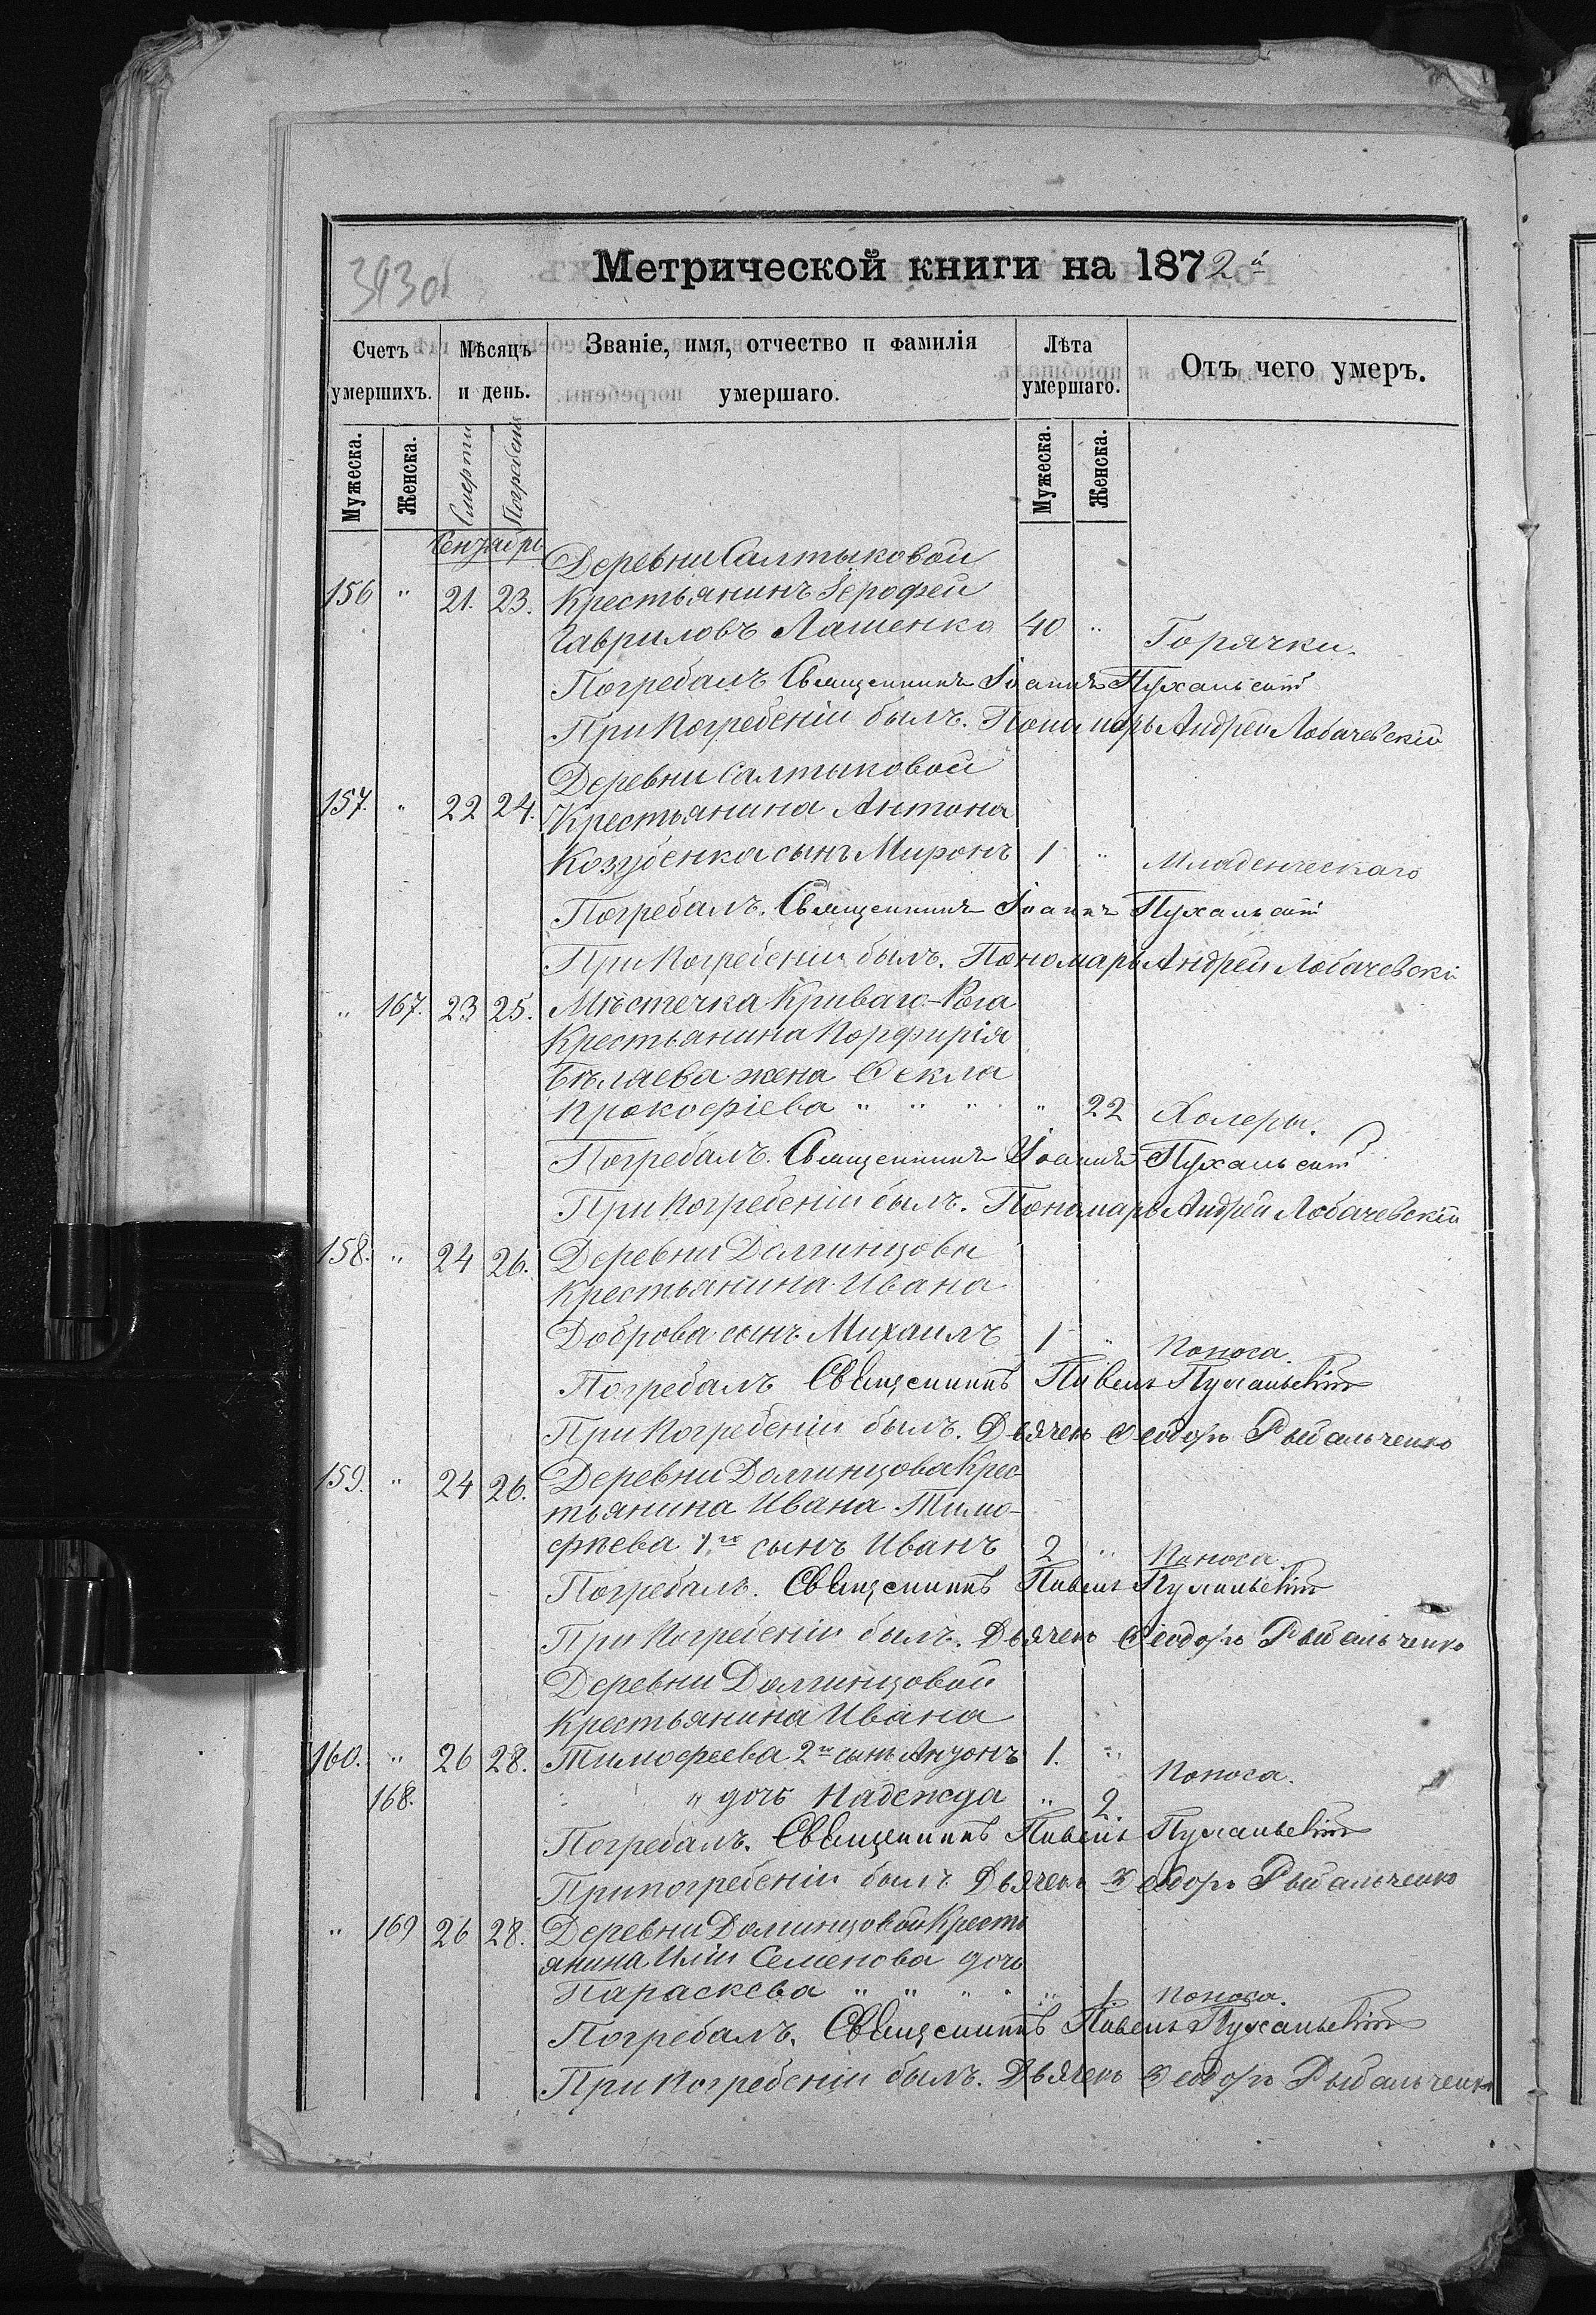 393об
Метрической книги на 1872й
Счетъ умершихъ. Мѣсяцъ и день. Званіе, имя, отчество и фамилія умершаго. Лѣта умершаго. Отъ чего умеръ.
Мужеска. Женска. Смерти Погребенія Мужеска. Женска.
Сентябрь
Деревни Салтыковой
156 " 21. 23. Крестьянинъ Іерофей
Гавриловъ Лашенко 40 " Горячки.
Погребалъ Священникъ Іоаннъ Пухальскій
При погребеніи былъ. Пономарь Андрей Лобачевскій
Деревни Салтыковой
157. " 22 24. Крестьянина Антона
Козубенка сынъ Миронъ 1 " Младенческаго
Погребалъ. Священникъ Іоаннъ Пухальскій
При погребеніи былъ. Пономарь Андрей Лобачевскі
" 167. 23 25. Мѣстечка Криваго-Рога
Крестьянина Порфирія
Бѣляева жена Ѳекла
Прокофіева " " " " 22 Холеры.
Погребалъ. Священникъ Іоаннъ Пухальскій
При погребеніи былъ. Пономарь Андрей Лобачевскій
158. " 24 26. Деревни Долгинцова
Крестьянина Ивана
Доброва сынъ Михаилъ 1 " Поноса.
Погребалъ Священникъ Павелъ Пухальскій
При погребеніи былъ. Дьячекъ Ѳеодоръ Рыбальченко
159. " 24 26. Деревни Долгинцова Крес-
тьянина Ивана Тимо-
фѣева 1й сынъ Иванъ 2 " Поноса
Погребалъ. Священникъ Павелъ Пухальскій
При погребеніи былъ. Дьячекъ Ѳеодоръ Рыбальченко
Деревни Долгинцовой
Крестьянина Ивана
160. " 26 28. Тимофеева 2й сынъ 1. " Поноса.
168. " дочь Надежда " 2.
Погребалъ. Священникъ Павелъ Пухальскій
При погребеніи былъ Дьячекъ Ѳеодоръ Рыбальченко
" 169 26 28. Деревни Долгинцовой Кресть
янина Иліи Семенова дочь
Параскева " " " " " 1 поноса.
Погребалъ. Священникъ Павелъ Пухальскій
При погребеніи былъ. Дьячекъ Ѳеодоръ Рыбальченко